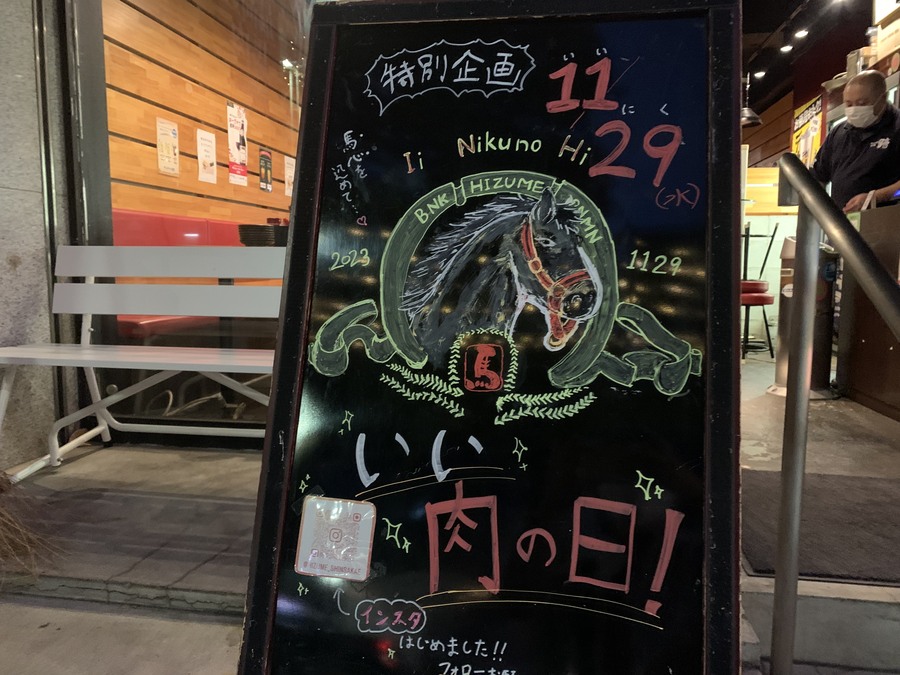 特別企画
いい
11
にく
29
(水)
馬心を
込めて…♡
Ii Nikuno Hi
HIZUME
2023
1129
馬
いい
肉の日!
インスタ
はじめました!!
フォロー